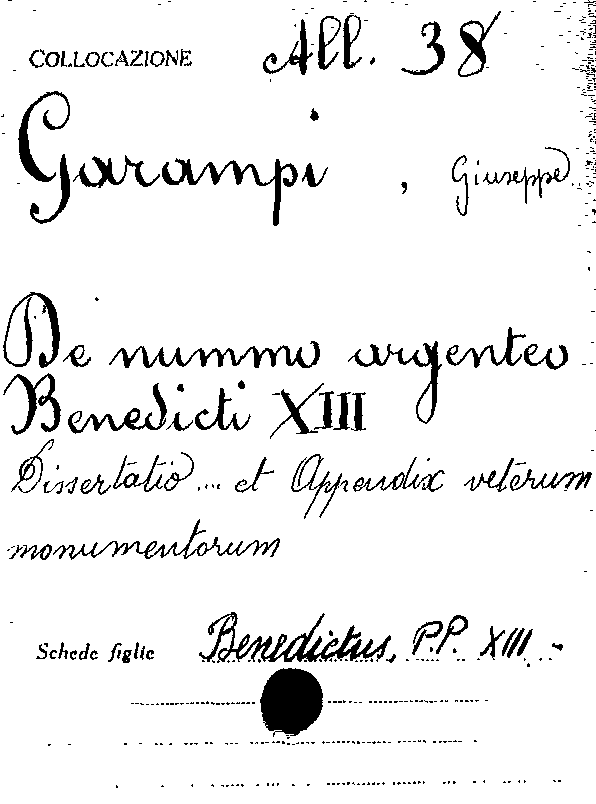 COLLOCAZIONE All. 38
Garampi, Giuseppe
De nummo argenteo
Benedicti XIII
Dissertatio ... et Appendix veterum
monumentorum
Schede figlie Benedictus, P.P. XIII. -